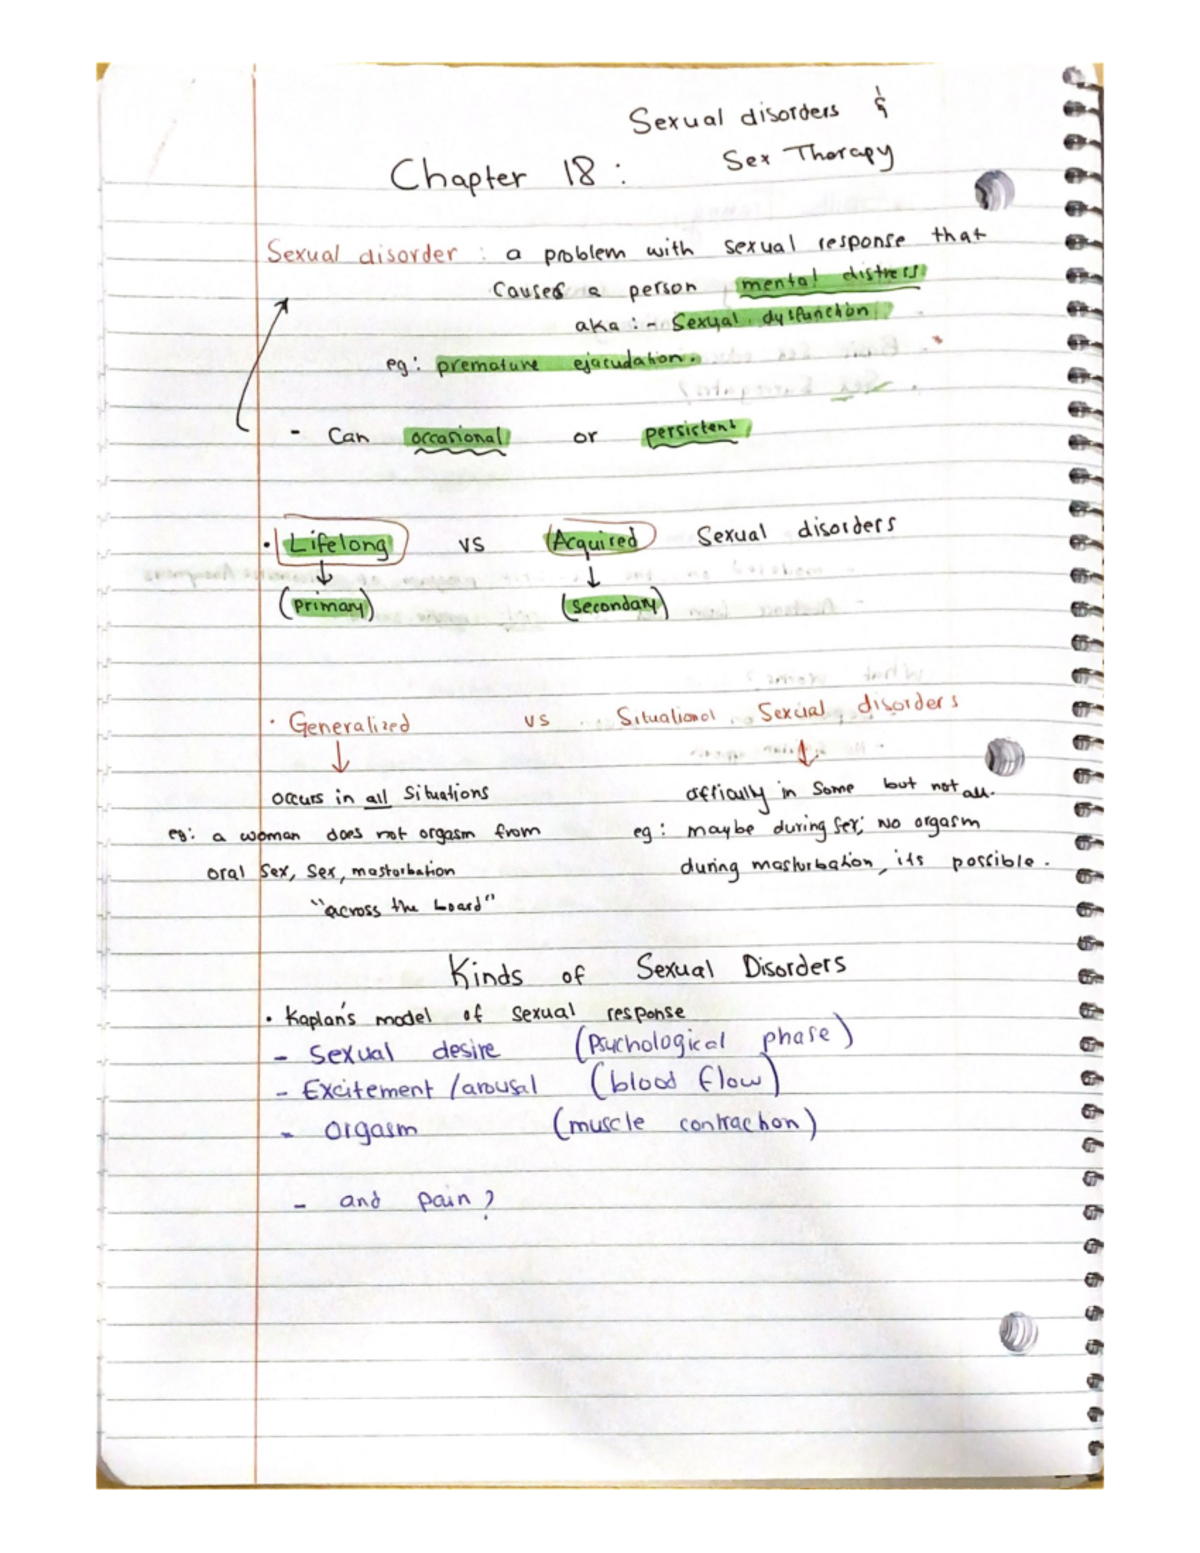 Sexual disorders &
Chapter 18: Sex Therapy
Sexual disorder : a problem with sexual response that
causes a person mental distress
aka :- Sexual dysfunction
eg: premature ejaculation.
- Can occasional or persistent
• Lifelong vs Acquired Sexual disorders
(primary) (secondary)
• Generalized vs Situational Sexual disorders
occurs in all situations
eg: a woman does not orgasm from
oral sex, sex, mastorbation
"across the board"
in some but not all.
eg: maybe during sex; no orgasm
during masturbation, its possible.
Kinds of Sexual Disorders
• Kaplan's model of sexual response
- Sexual desire (Psychological phase)
- Excitement /arousal (blood flow)
- orgasm (muscle contraction)
- and pain?